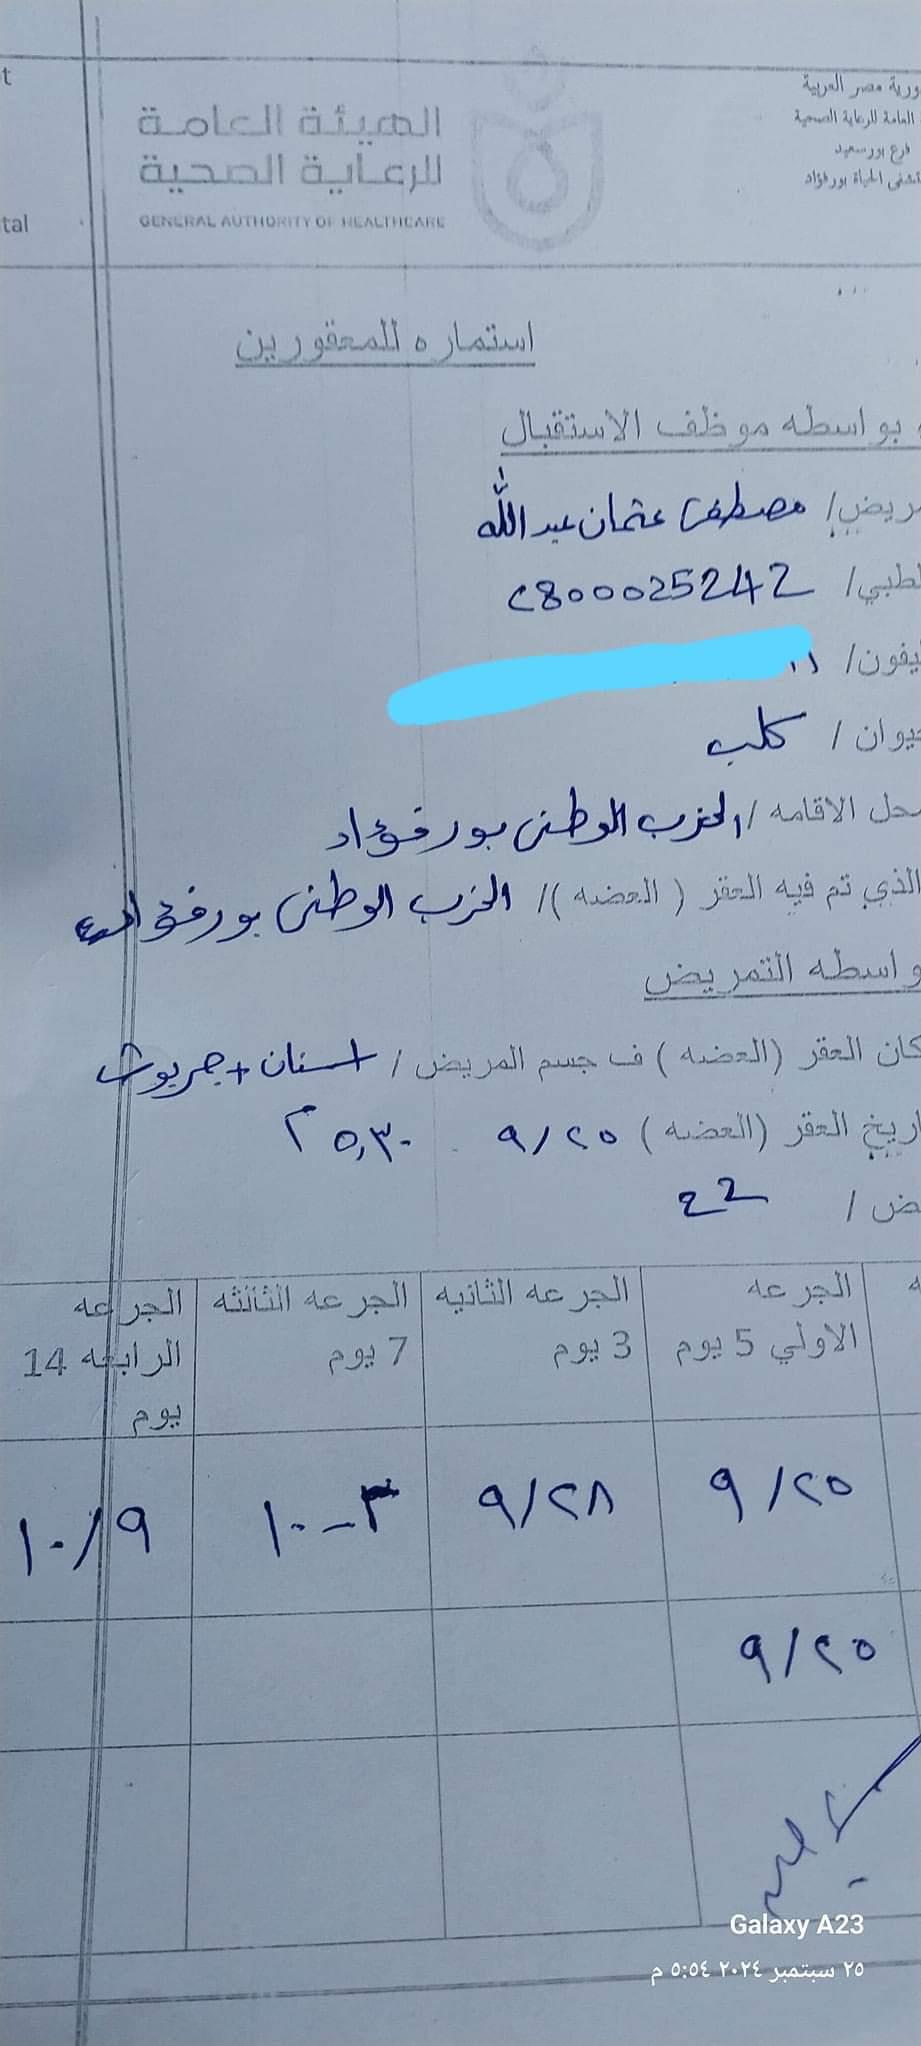 t
tal
الهيئة العامة
للرعاية الصحية
GENERAL AUTHORITY OF HEALTHCARE
ورية مصر العربية
العامة للرعاية الصحية
فرع بورسعيد
تشفى الحياة بورفؤاد
استماره للمعقورين
بواسطه موظف الاستقبال
ريض/ مصطفى عثمان عبد الله
لطبي/ 28000025242
يفون/
حيوان / كلب
حل الاقامه / الحزب الوطنى بورفؤاد
الذي تم فيه العقر ( العضه )/ الحزب الوطنى بورفؤاد
واسطه التمريض
كان العقر (العضه ) ف جسم المريض / اسنان +
اريخ العقر (العضه ) ٩/٢٥ ٥,٣٠ م
ض /
ه
الجرعه الاولي 5 يوم
الجرعه الثانيه 3 يوم
الجرعه الثالثه 7 يوم
الجرعه الرابعه 14 يوم
٩/٢٥ ٩/٢٨ ١٠-٣ ١٠/٩
٩/٢٥
Galaxy A23
٢٥ سبتمبر ٢٠٢٤ ٥:٥٤ م